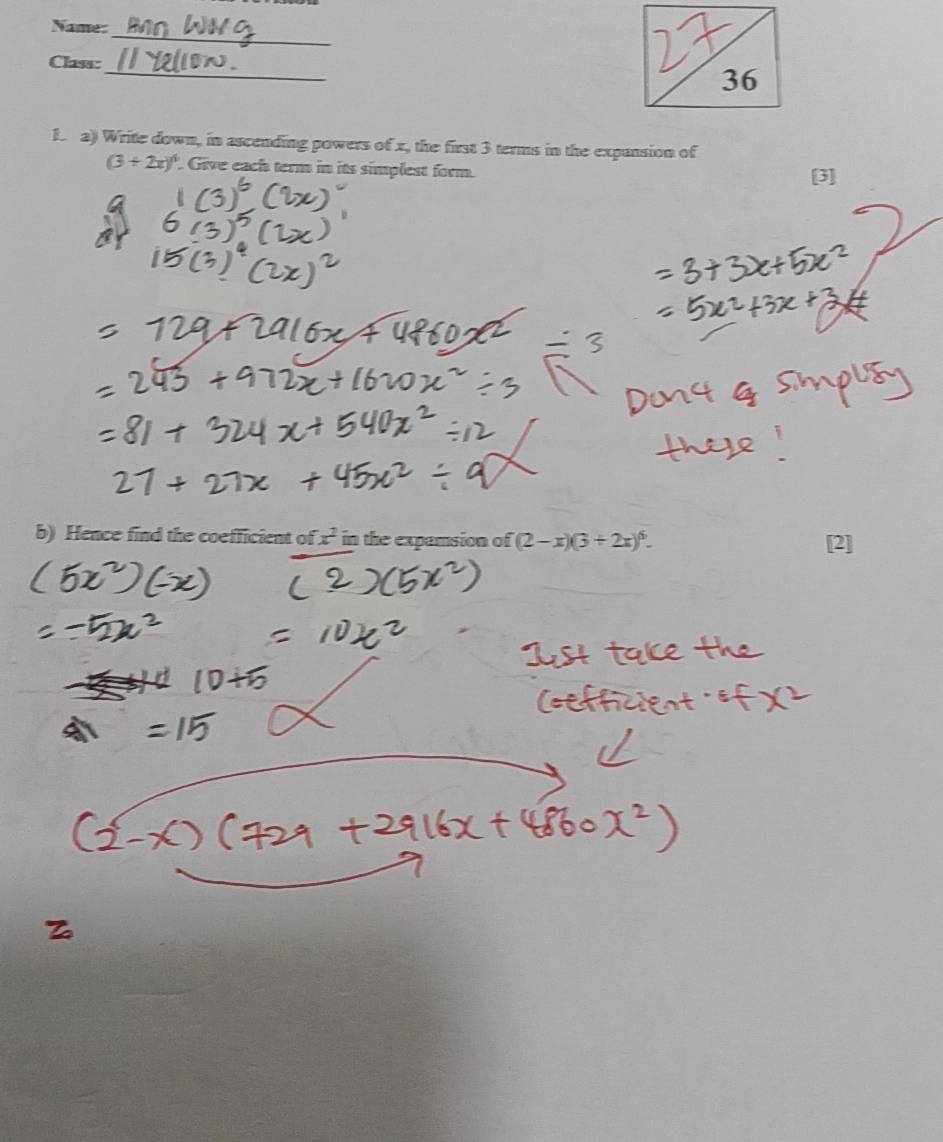 Name:
Class: 11 Yellow.
27
36
1. a) Write down, in ascending powers of x, the first 3 terms in the expansion of
(3 + 2x)⁶. Give each term in its simplest form.
[3]
1(3)⁶(2x)⁰
6(3)⁵(2x)¹
15(3)⁴(2x)²
= 3+3x+5x²
= 5x²+3x+3
2
= 729+2916x+4860x² ÷3
= 243 +972x+1620x² ÷3
= 81 + 324x + 540x² ÷12
27 + 27x + 45x² ÷ 9
Don't simplify
these!
b) Hence find the coefficient of x² in the expansion of (2 − x)(3 + 2x)⁶.
[2]
(5x²)(-x) (2)(5x²)
= -5x² = 10x²
10+5
= 15
Just take the
coefficient of x²
(2-x)(729 +2916x+4860x²)